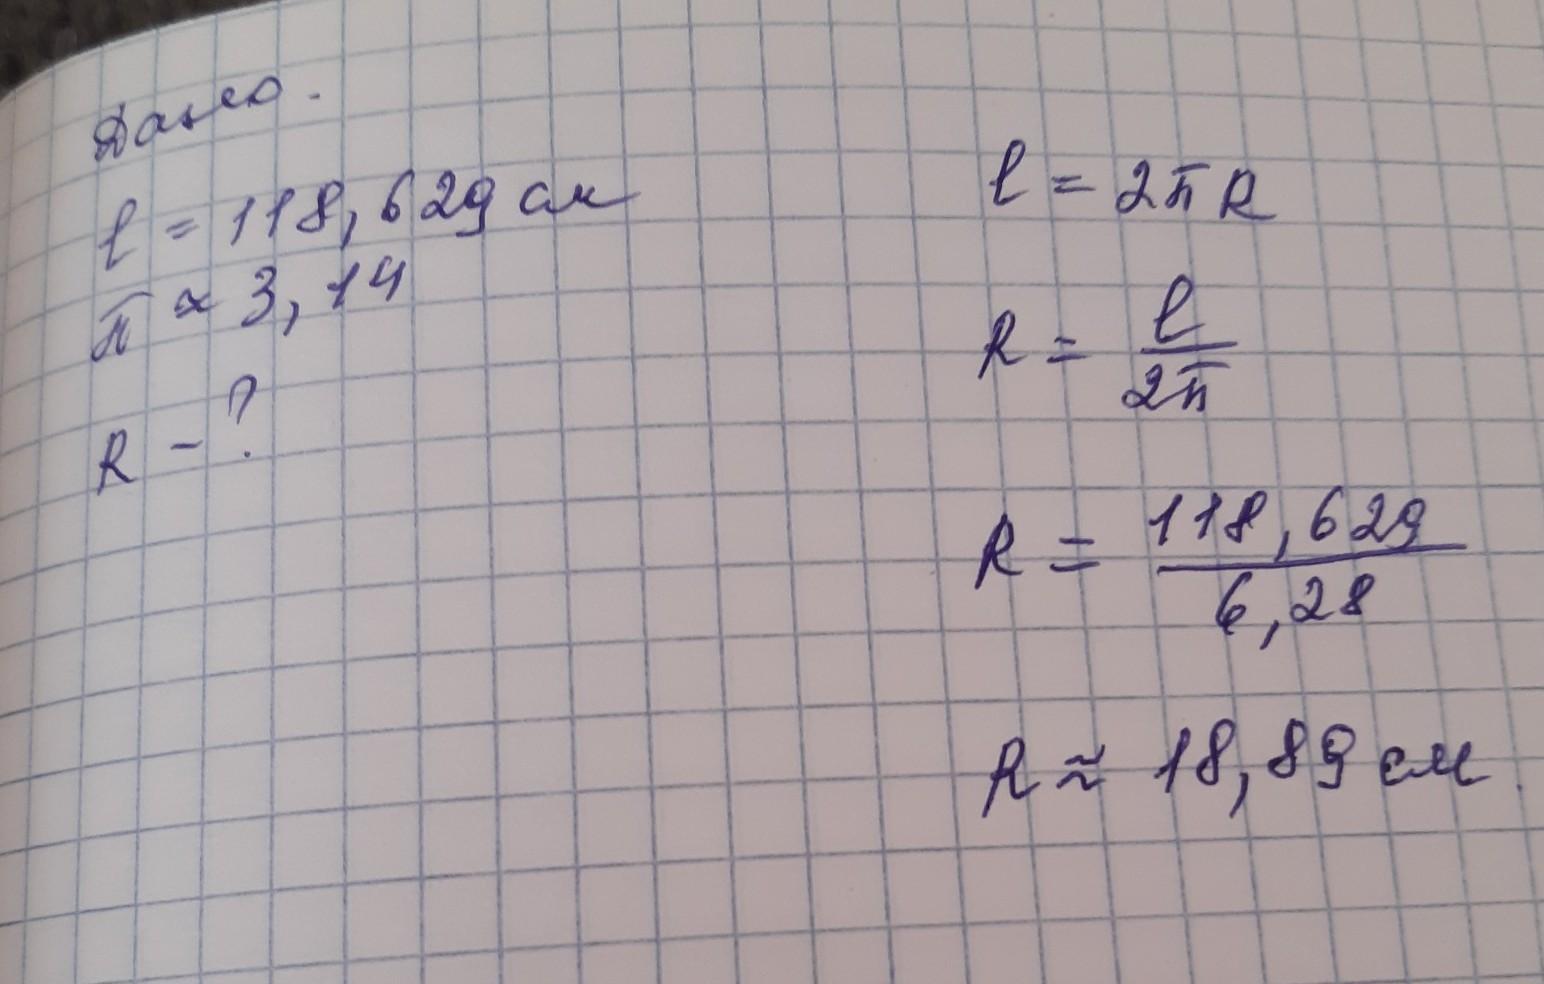 Дано.
l = 118,629 см
π ≈ 3,14
R - ?
l = 2πR
R = l / 2π
R = 118,629 / 6,28
R ≈ 18,89 см.